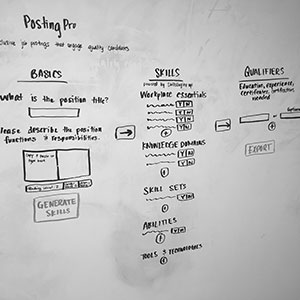 Posting Pro
job postings that engage quality candidates
BASICS
What is the position title?
Please describe the position
functions & responsibilities.
GENERATE
SKILLS
SKILLS
Workplace essentials
Y N
Y N
Y N
+
KNOWLEDGE DOMAINS
Y N
Y N
+
SKILL SETS
Y N
+
ABILITIES
Y N
+
TOOLS & TECHNOLOGIES
QUALIFIERS
Education, experience,
certificates,
needed
or
EXPORT